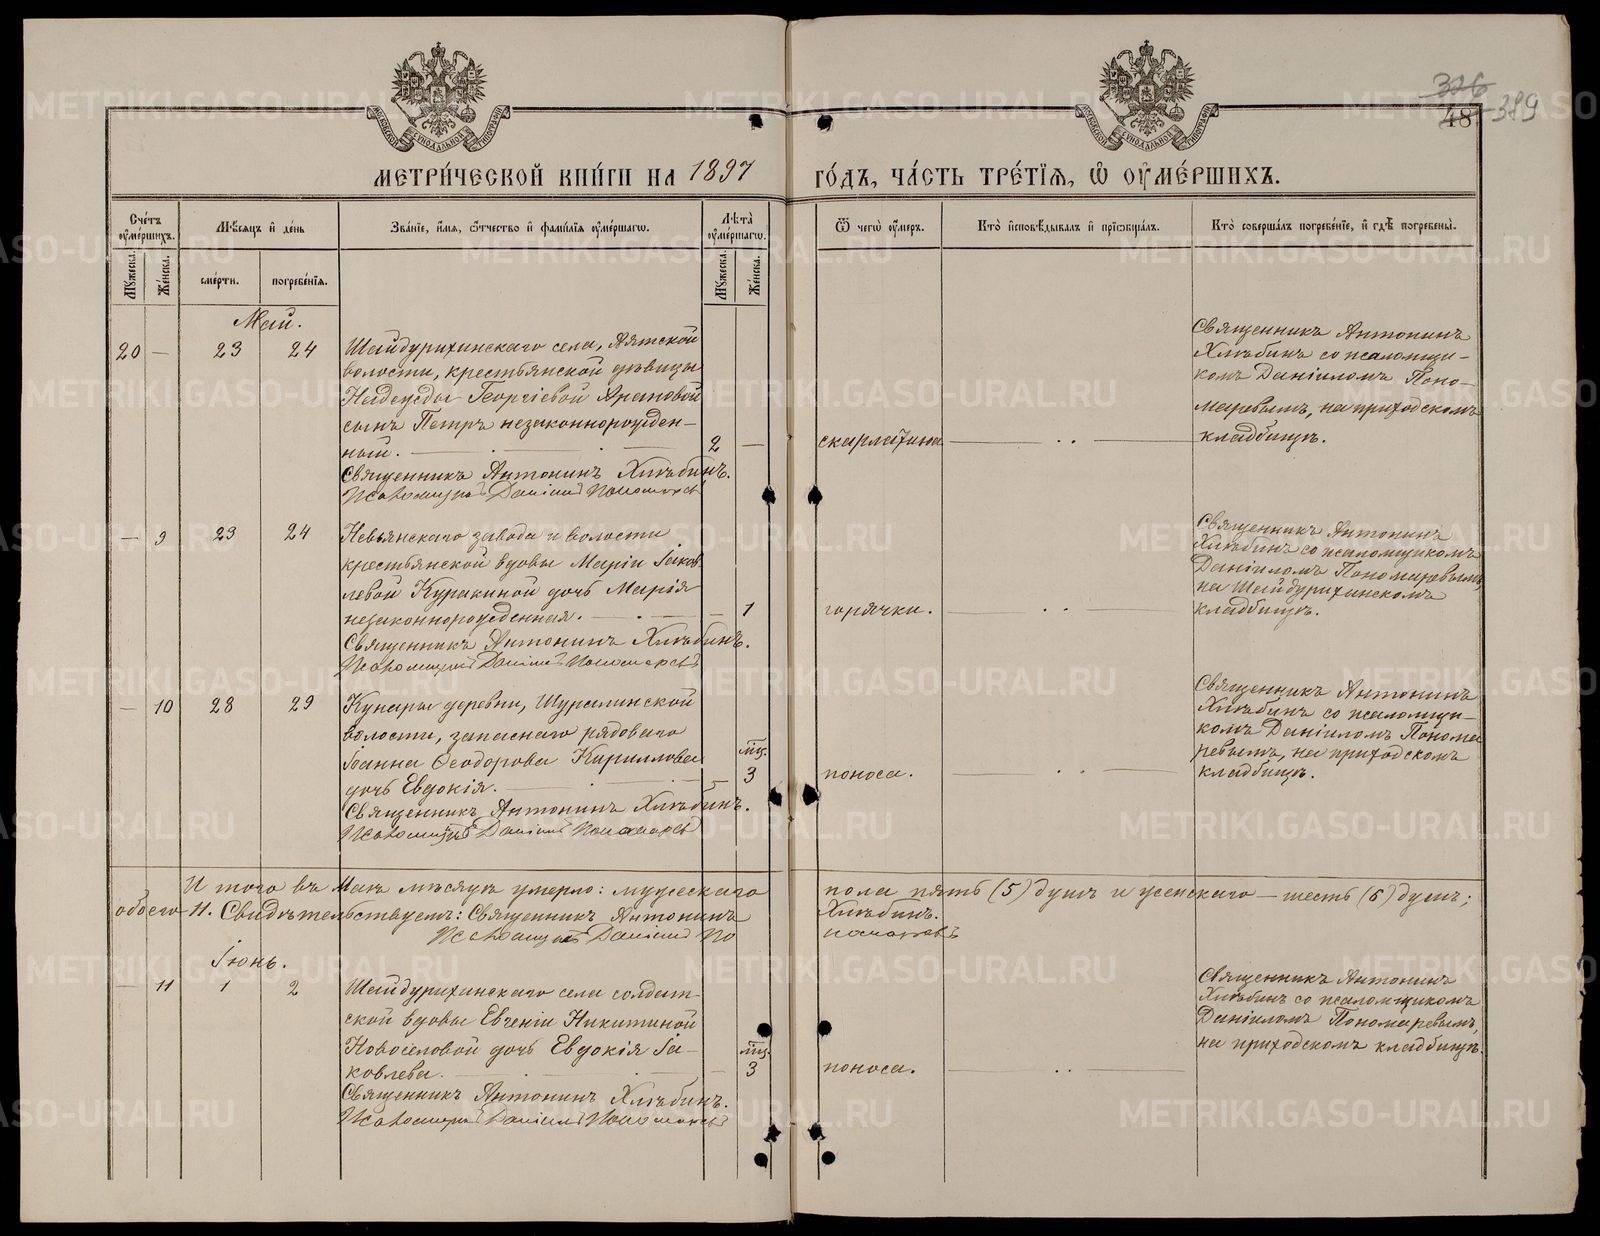 376
48
389
МОСКОВСКОЙ СѴНОДАЛЬНОЙ ТИПОГРАФІИ
МОСКОВСКОЙ СѴНОДАЛЬНОЙ ТИПОГРАФІИ
МЕТРИ́ЧЕСКОЙ КНИ́ГИ НА 1897 ГО́ДЪ, ЧА́СТЬ ТРЕ́ТІЯ, Ѿ ОУМЕ́РШИХЪ.
Сче́тъ оумершихъ.
Мѣсяцъ и день
Зва́нїе, и́мя, ѻ́тчество и фами́лїя оуме́ршагѡ.
Лѣта̀ оуме́ршагѡ.
Ѿ чегѡ̀ оу́меръ.
Кто̀ и҆сповѣ́дывалъ и҆ прїѡбща́лъ.
Кто̀ соверша́лъ погребе́нїе, и҆ гдѣ̀ погребены̀.
Мꙋжеска.
Женска.
сме́рти.
погребе́нїя.
Мꙋжеска.
Женска.
Май.
20 — 23 24
Шайдурихинскаго села, Аятской
волости, крестьянской дѣвицы
Надежды Георгіевой Араповой
сынъ Петръ незаконнорожден-
ный. 2 —
Священникъ Антонинъ Хлѣбинъ.
Псаломщикъ Даніилъ Пономаревъ
скарлатина
Священникъ Антонинъ
Хлѣбинъ со псаломщи-
комъ Даніиломъ Поно-
маревымъ, на приходскомъ
кладбищѣ.
— 9 23 24
Невьянскаго завода и волости
крестьянской вдовы Маріи Іаков
левой Куракиной дочь Марія
незаконнорожденная. — 1
Священникъ Антонинъ Хлѣбинъ.
Псаломщикъ Даніилъ Пономаревъ
горячки.
Священникъ Антонинъ
Хлѣбинъ со псаломщикомъ
Даніиломъ Пономаревымъ,
на Шайдурихинскомъ
кладбищѣ.
— 10 28 29
Кунары деревни, Шуралинской
волости, запаснаго рядоваго
Іоанна Ѳеодорова Кириллова
дочь Евдокія. — мц. 3
Священникъ Антонинъ Хлѣбинъ.
Псаломщикъ Даніилъ Пономаревъ
поноса.
Священникъ Антонинъ
Хлѣбинъ со псаломщи-
комъ Даніиломъ Понома
ревымъ, на приходскомъ
кладбищѣ.
И того въ Маѣ мѣсяцѣ умерло: мужескаго пола пять (5) душъ и женскаго — шесть (6) душъ;
обоего 11. Свидѣтельствуемъ: Священникъ Антонинъ Хлѣбинъ.
Псаломщикъ Даніилъ Пономаревъ
Іюнь.
— 11 1 2
Шайдурихинскаго села солдат-
ской вдовы Евгеніи Никитиной
Новоселовой дочь Евдокія Іа-
ковлева. — мц. 3
Священникъ Антонинъ Хлѣбинъ.
Псаломщикъ Даніилъ Пономаревъ
поноса.
Священникъ Антонинъ
Хлѣбинъ со псаломщикомъ
Даніиломъ Пономаревымъ,
на приходскомъ кладбищѣ.
METRIKI.GASO-URAL.RU